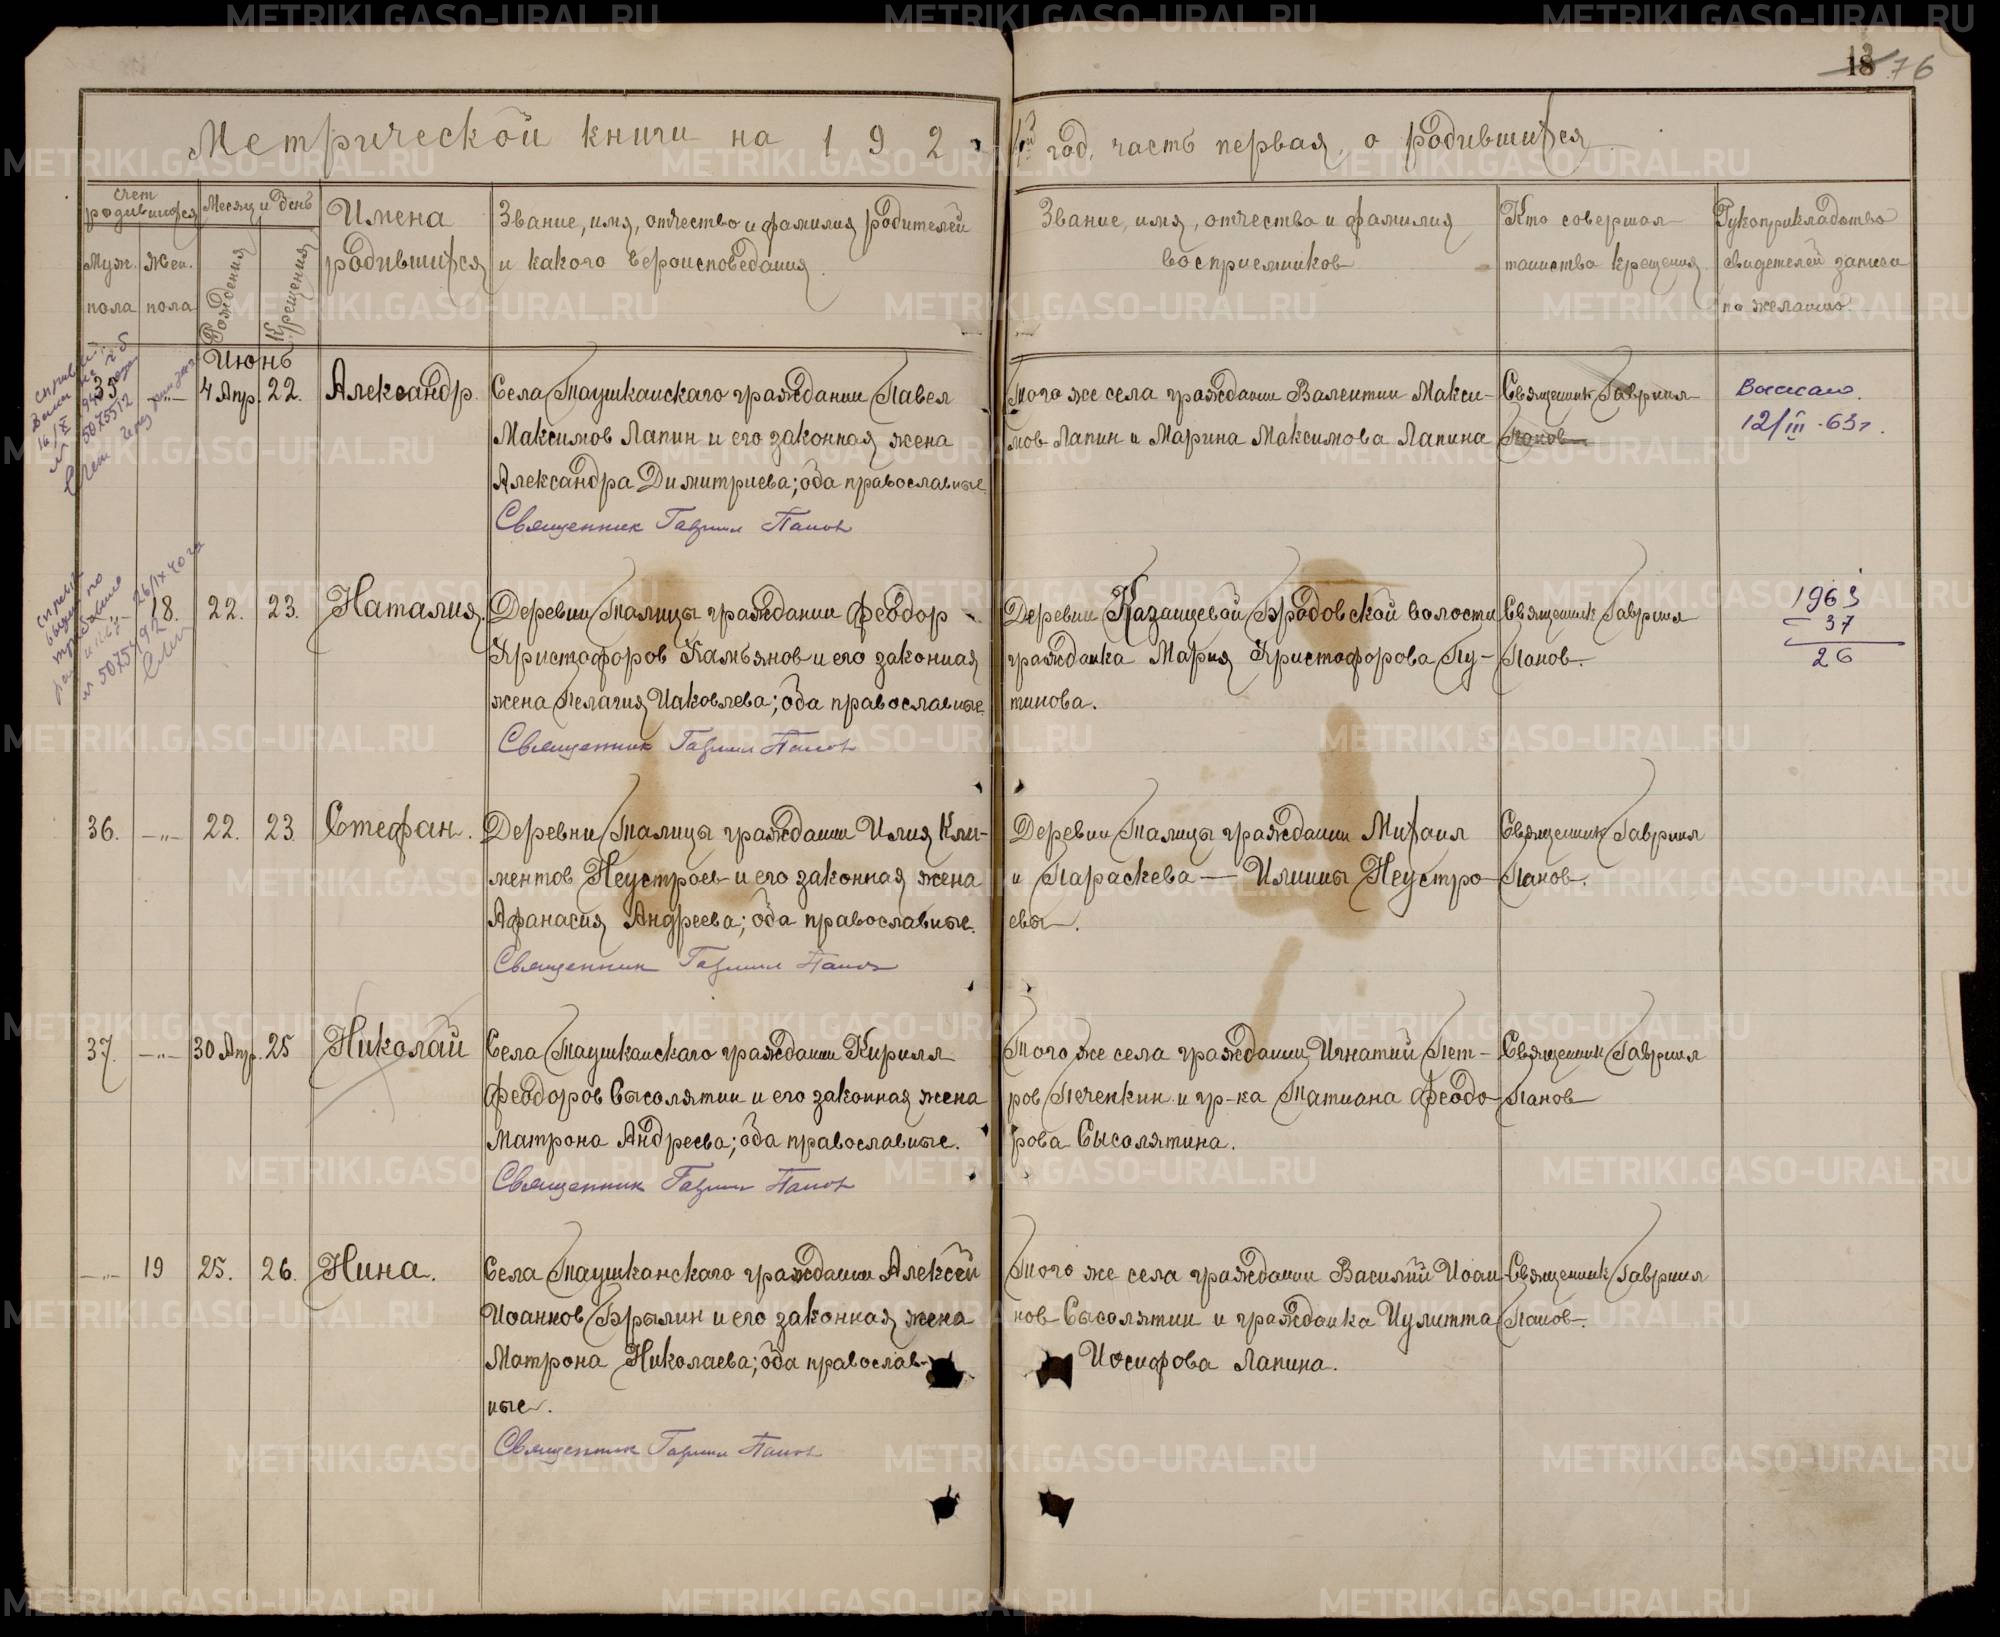 18 76
Метрической книги на 192
год, часть первая, о родившихся
счет родившихся
Муж. пола
Жен. пола
Месяц и день
Рождения
Крещения
Имена родившихся
Звание, имя, отчество и фамилия родителей
и какого вероисповедания.
Звание, имя, отчество и фамилия
восприемников
Кто совершал
таинство крещения
Рукоприкладство
свидетелей записи
по желанию.
Июнь
35 -"- 4 Апр. 22. Александр.
Села Таушканскаго гражданин Павел
Максимов Лапин и его законная жена
Александра Димитриева; оба православные.
Священник Гавриил Попов
Того же села граждане Валентин Макси-
мов Лапин и Марина Максимова Лапина
Священник Гавриил
Попов
12/III-63г.
18. 22. 23. Наталия.
Деревни Талицы гражданин Феодор
Христофоров Камьянов и его законная
жена Пелагия Иаковлева; оба православные.
Священник Гавриил Попов
Деревни Казанцевой Бродовской волости
гражданка Мария Христофорова Пу-
тинова.
Священник Гавриил
Попов.
1963
37
26
36. -"- 22. 23 Стефан.
Деревни Талицы гражданин Илия Кли-
ментов Неустроев и его законная жена
Афанасия Андреева; оба православные.
Священник Гавриил Попов
Деревни Талицы граждане Михаил
и Параскева — Илиины Неустро-
евы.
Священник Гавриил
Попов.
37. -"- 30 Апр. 25 Николай
Села Таушканскаго гражданин Кирилл
Феодоров Сысолятин и его законная жена
Матрона Андреева; оба православные.
Священник Гавриил Попов
Того же села гражданин Игнатий Пет-
ров Печенкин и гр-ка Татиана Феодо-
рова Сысолятина.
Священник Гавриил
Попов
-"- 19 25. 26. Нина.
Села Таушканскаго гражданин Алексей
Иоаннов Брылин и его законная жена
Матрона Николаева; оба православ-
ные.
Священник Гавриил Попов
Того же села гражданин Василий Иоан-
нов Сысолятин и гражданка Иулитта
Иосифова Лапина.
Священник Гавриил
Попов.
METRIKI.GASO-URAL.RU